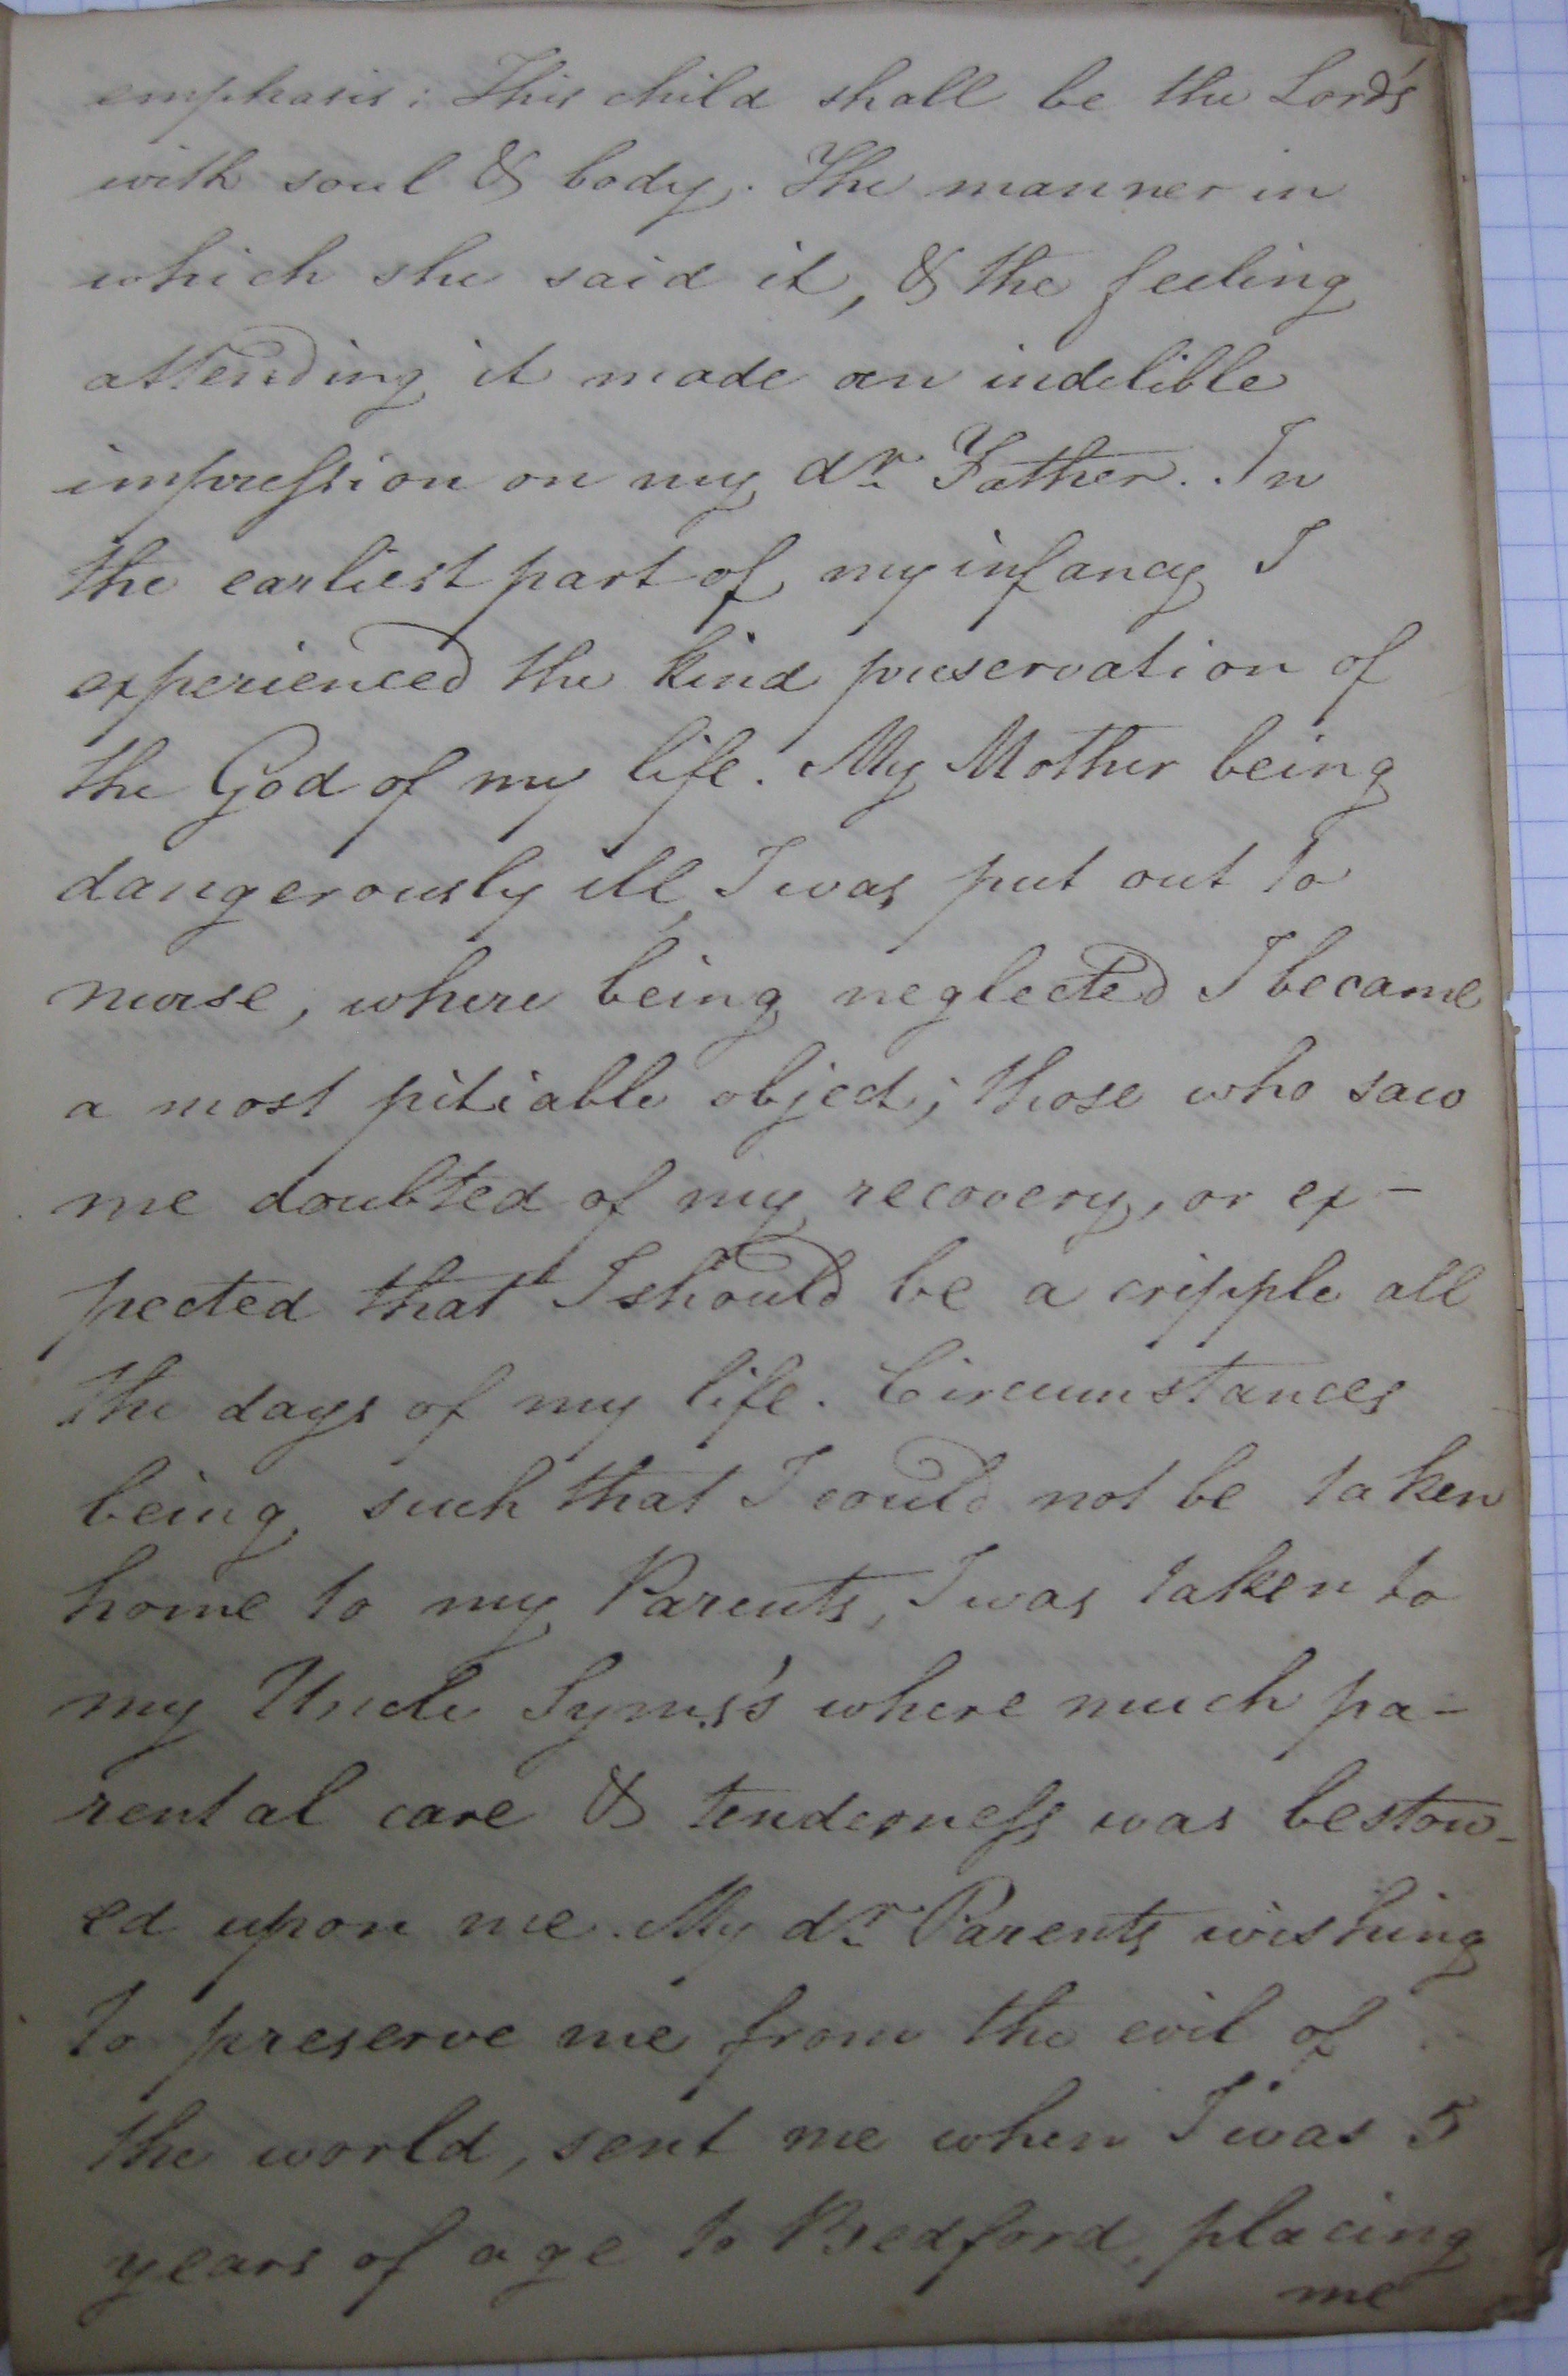 emphasis: This child shall be the Lord's
with soul & body. The manner in
which she said it, & the feeling
attending it made an indelible
impression on my dr. Father. In
the earliest part of my infancy I
experienced the kind preservation of
the God of my life. My Mother being
dangerously ill, I was put out to
nurse, where being neglected I became
a most pitiable object; those who saw
me doubted of my recovery, or ex-
pected that I should be a cripple all
the days of my life. Circumstances
being such that I could not be taken
home to my Parents, I was taken to
my Uncle Syms's where much pa-
rental care & tenderness was bestow-
ed upon me. My dr. Parents wishing
to preserve me from the evil of
the world, sent me when I was 5
years of age to Bedford, placing
me